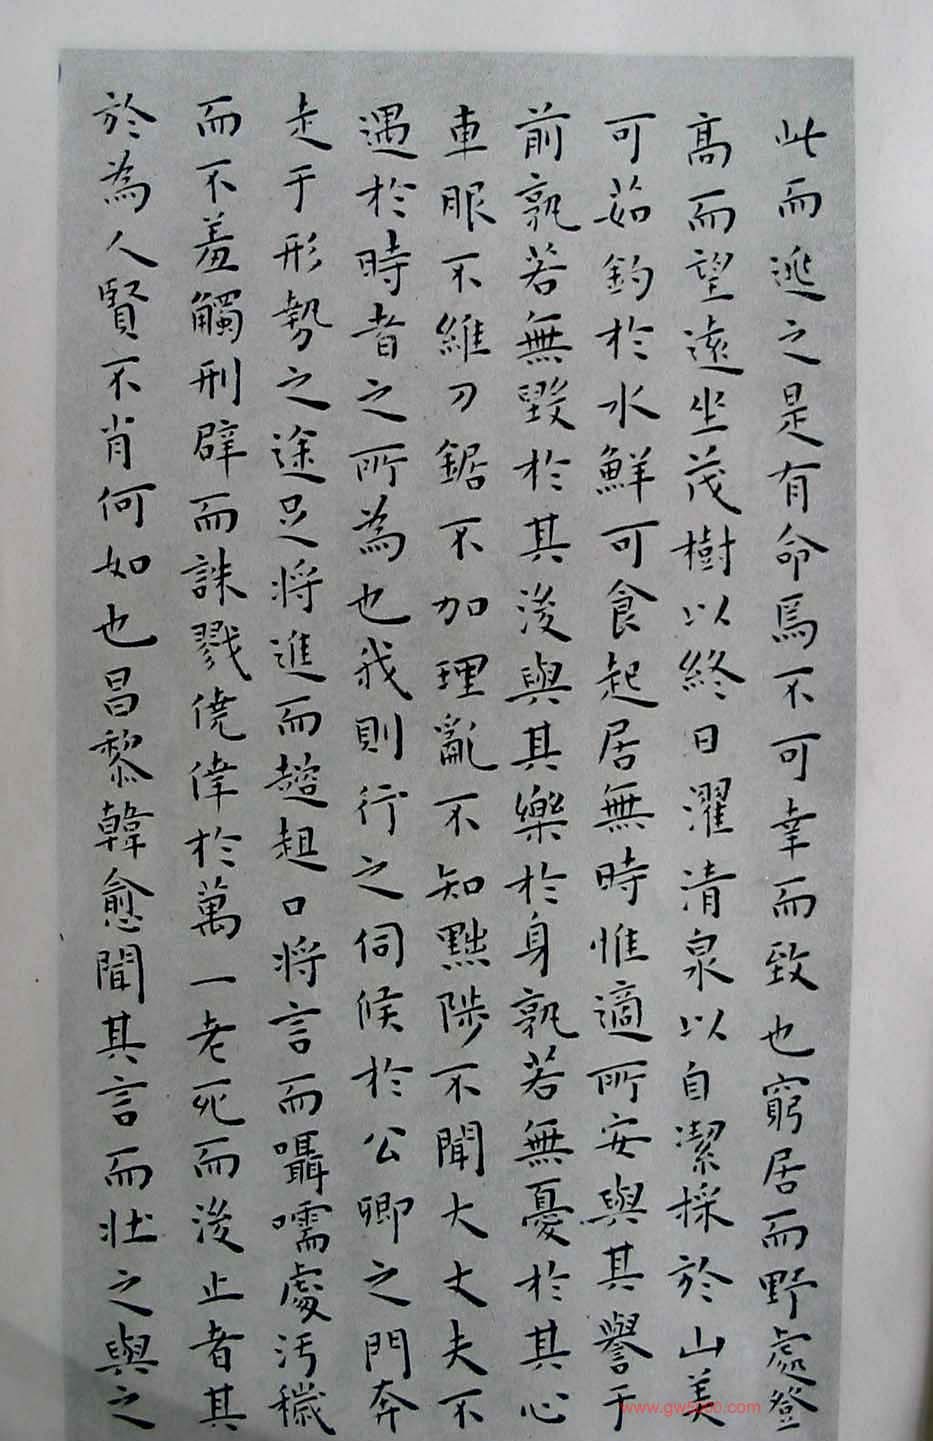 此而逃之是有命焉不可幸而致也窮居而野處登
高而望遠坐茂樹以終日濯清泉以自潔採於山美
可茹釣於水鮮可食起居無時惟適所安與其譽于
前孰若無毀於其後與其樂於身孰若無憂於其心
車服不維刀鋸不加理亂不知黜陟不聞大丈夫不
遇於時者之所為也我則行之伺候於公卿之門奔
走于形勢之途足將進而趑趄口將言而囁嚅處汚穢
而不羞觸刑辟而誅戮僥倖於萬一老死而後止者其
於為人賢不肖何如也昌黎韓愈聞其言而壯之與之
www.gw5000.com